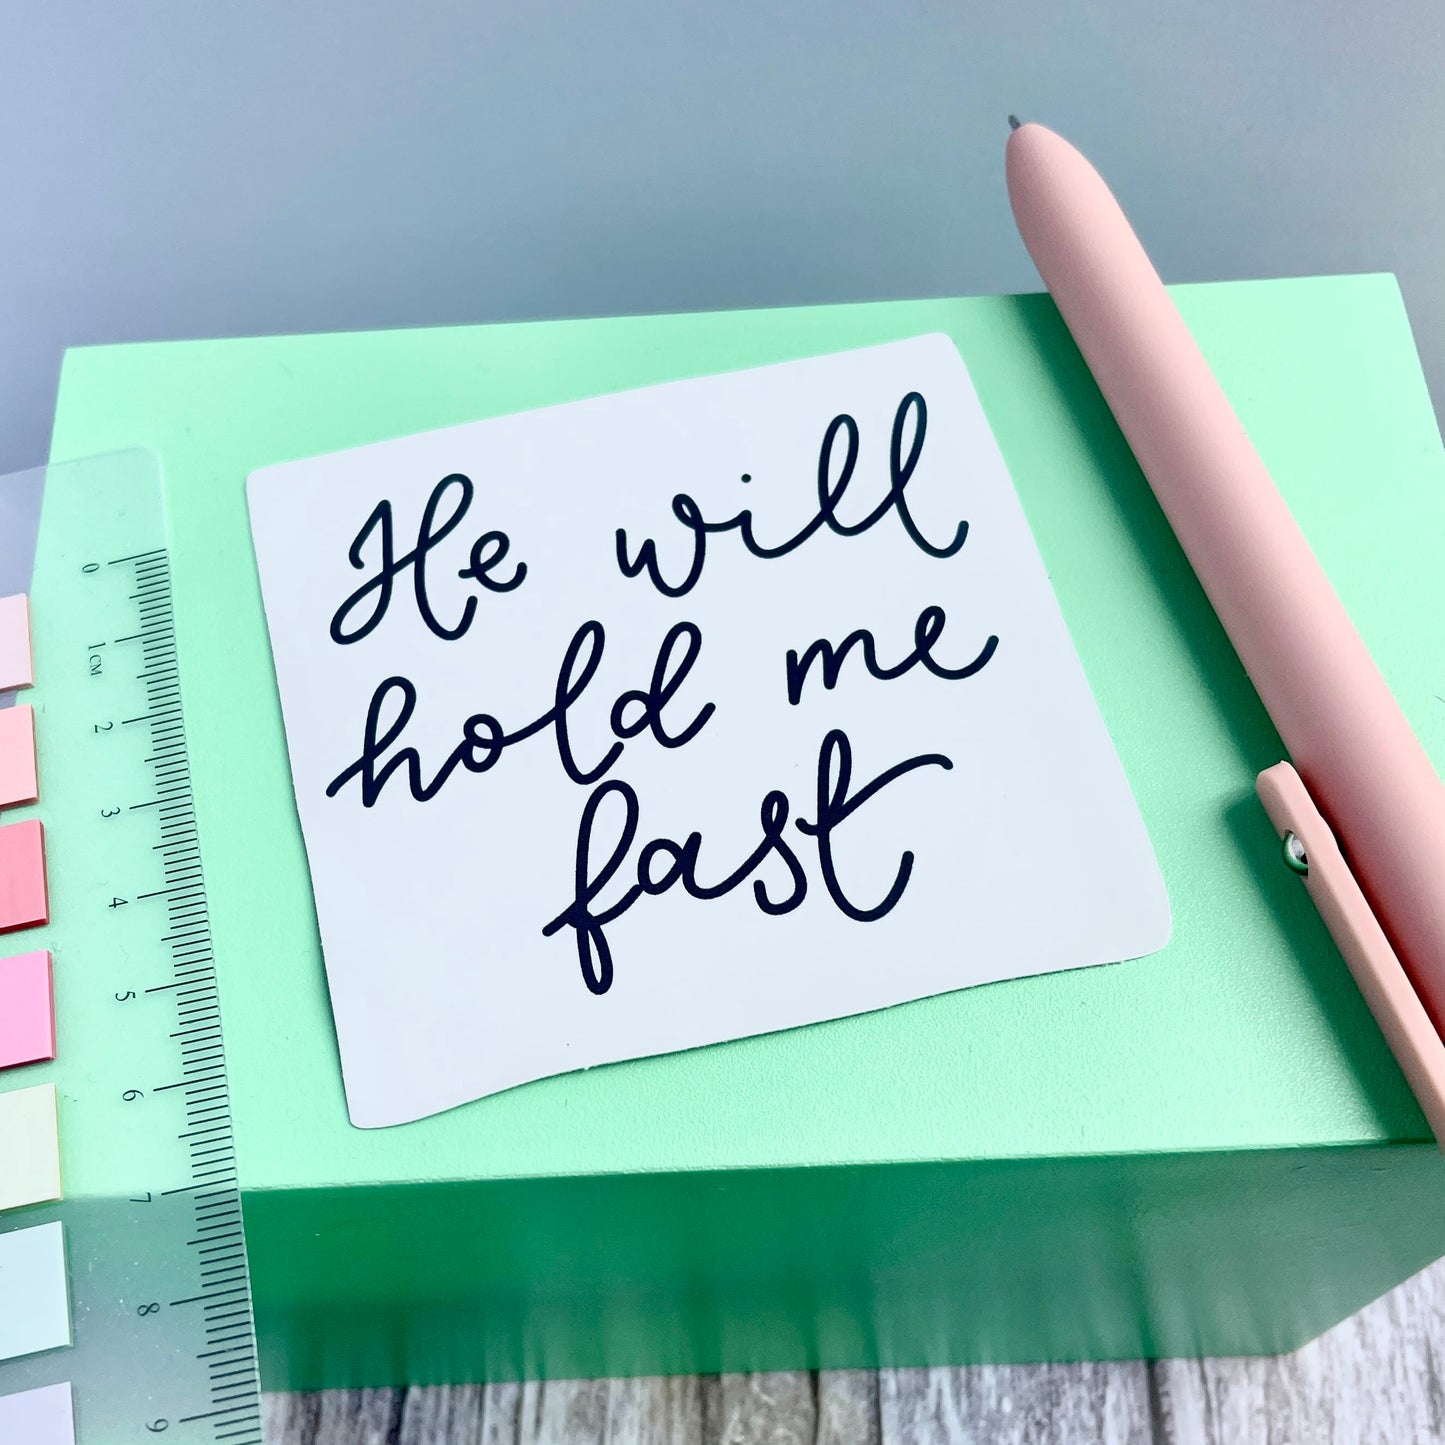 He will
hold me
fast
0
1CM
2
3
4
5
6
7
8
9